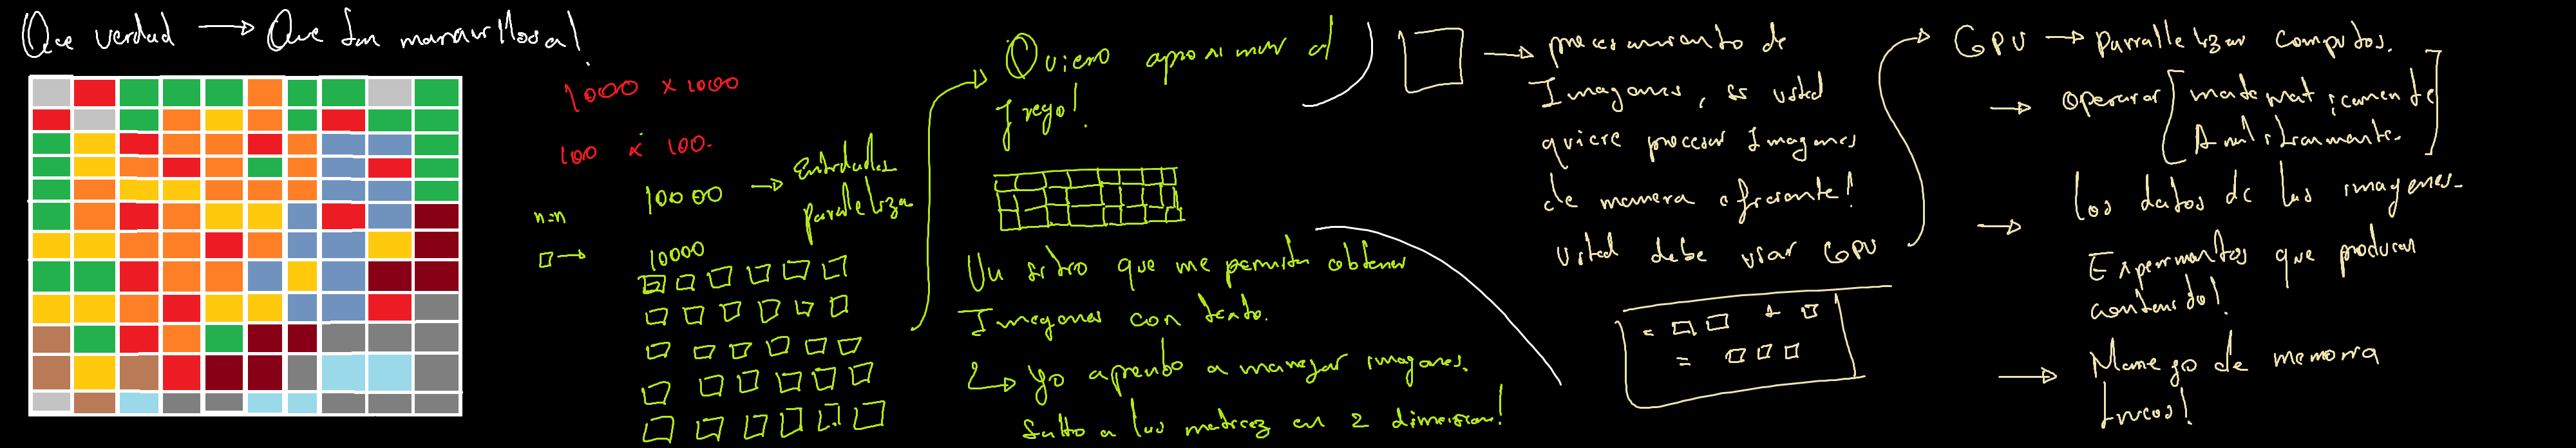 Que verdad → Que tan maravillosa!
1000 x 1000
100 x 100.
10000 → Entidades
paraleliza
n=n
10000
Quiero aproximar al
fuego!
Un sitio que me permita obtener
Imagenes con texto.
Yo aprendo a manejar imagenes.
Salto a las matrices en 2 dimension!
→ procesamiento de
Imagenes, si usted
quiere procesar Imagenes
de manera eficiente!
Usted debe usar GPU
= +
=
GPU → parallelizar computos.
→ Operar matematicamente
Analiticamente.
→ los datos de las imagenes.
Experimentos que produzcan
contenido!
→ Manejo de memoria